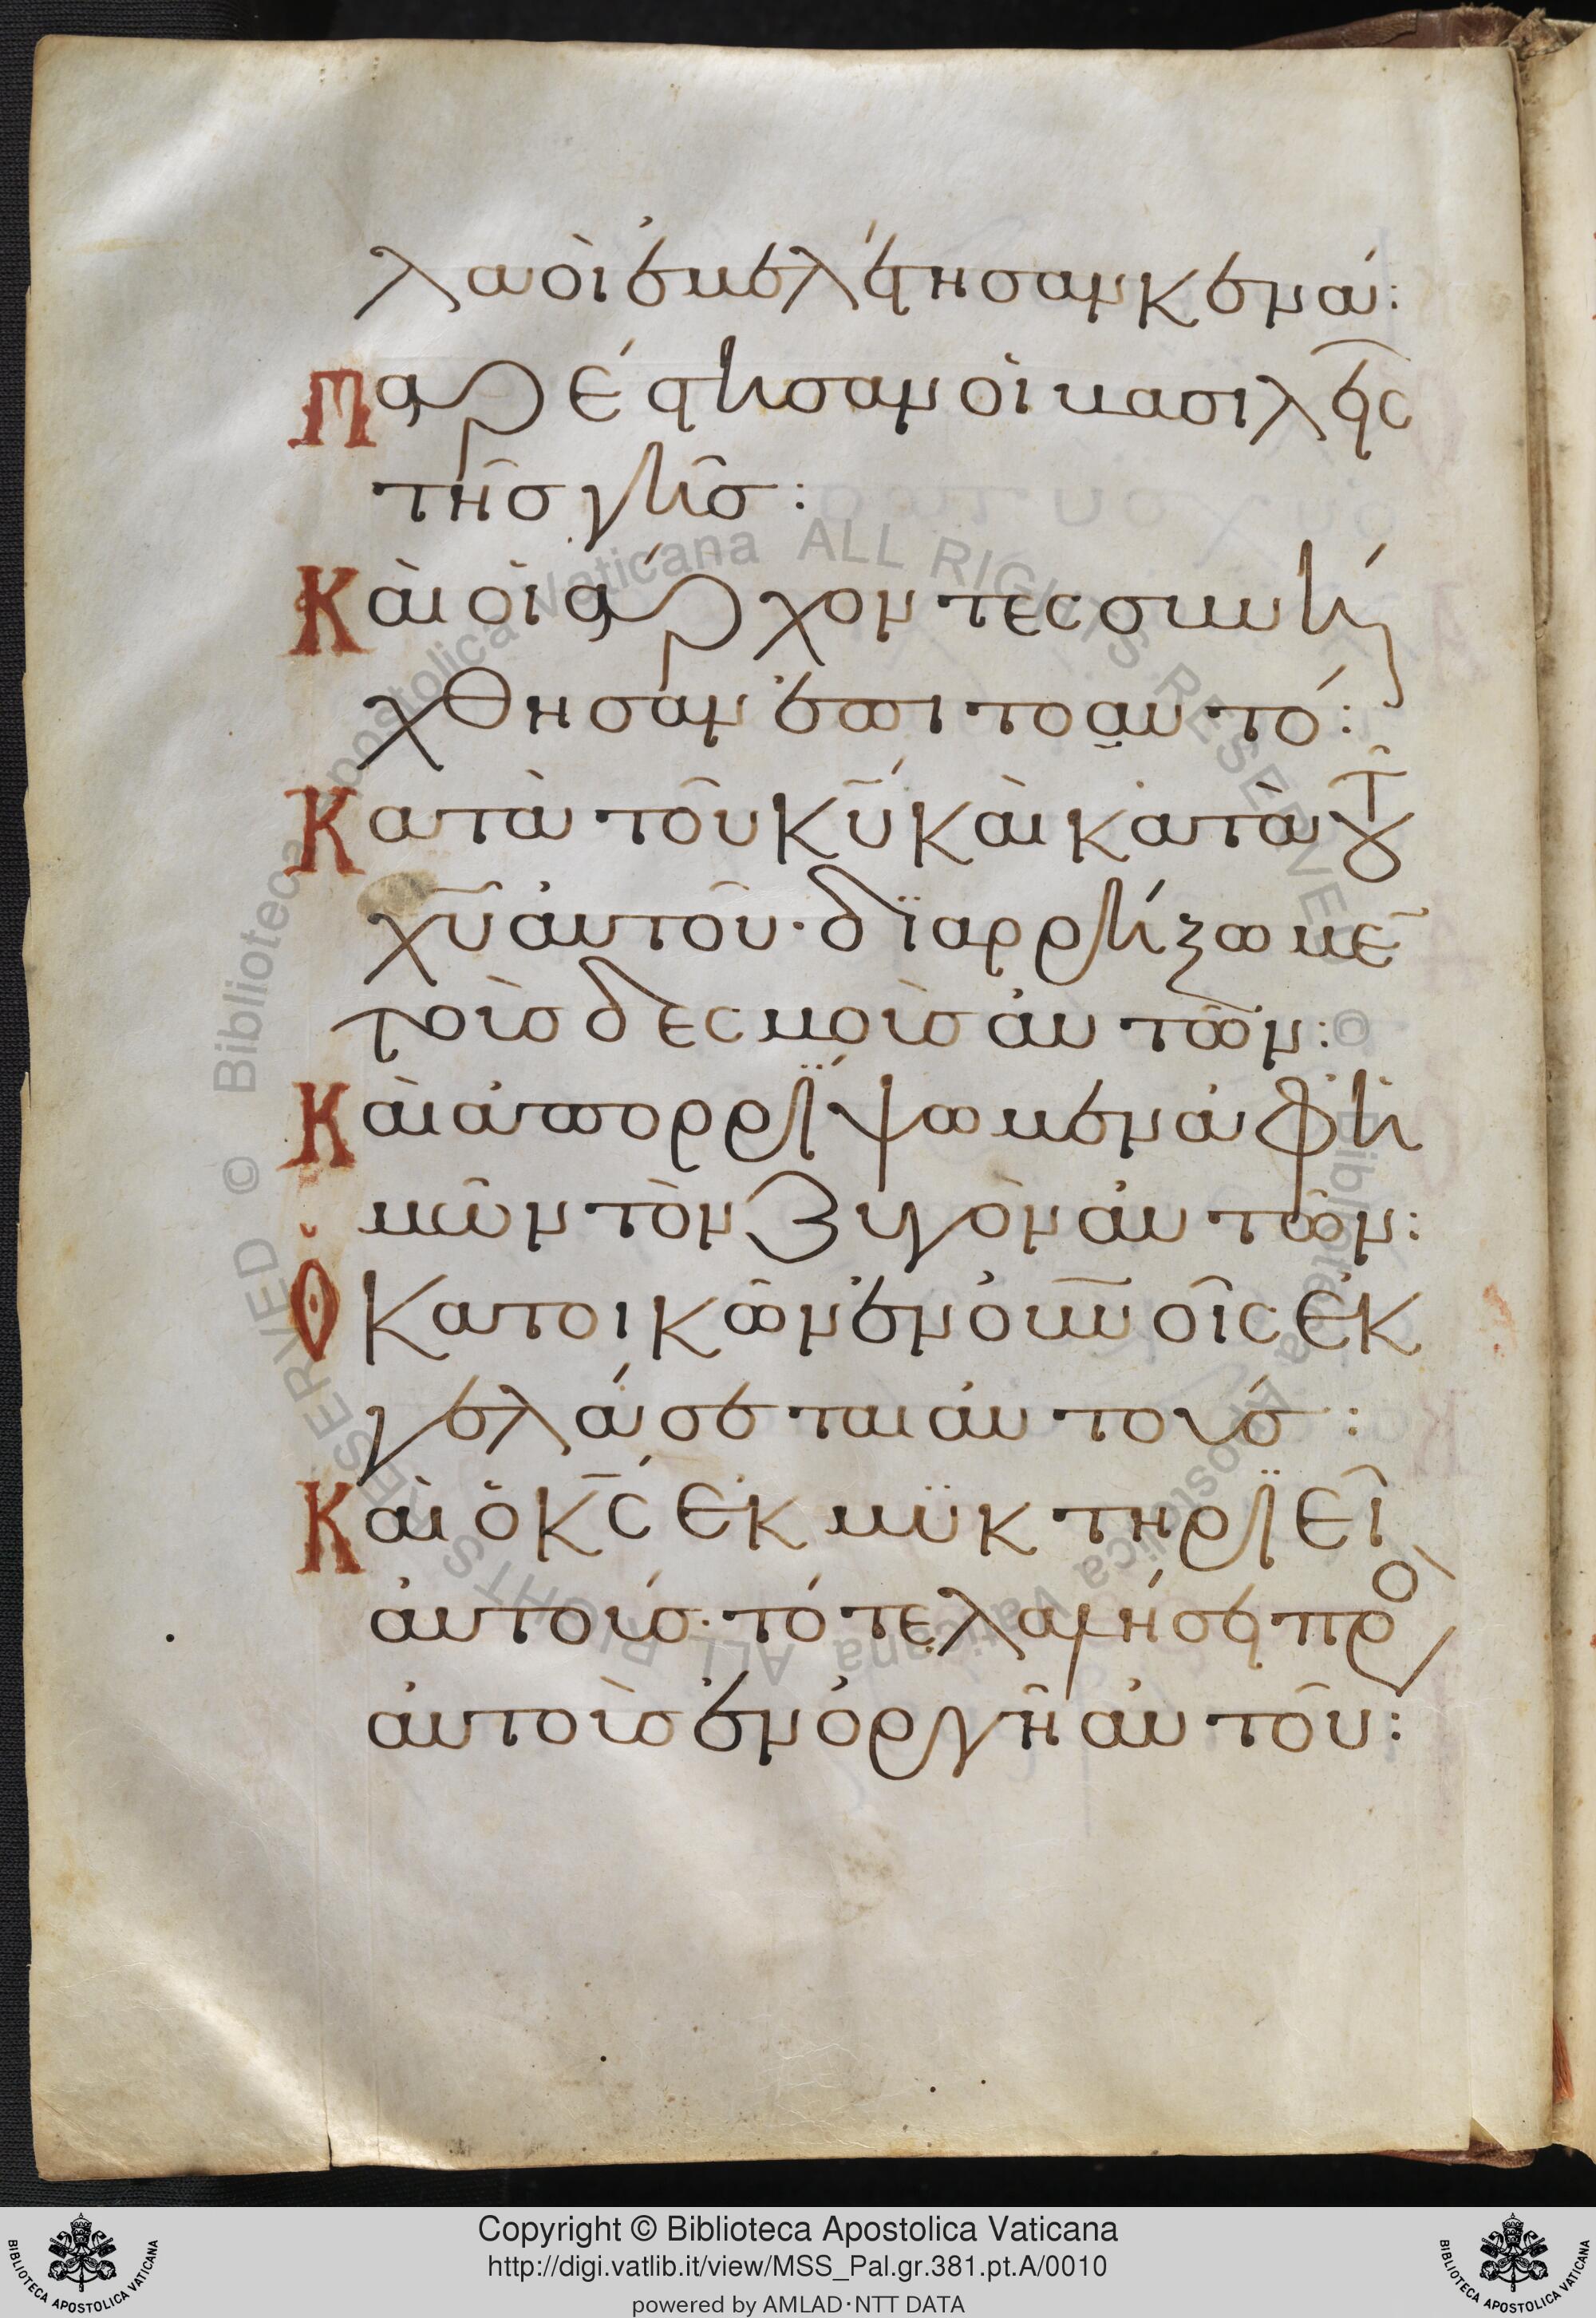 λαοὶ ἐμελέτησαν κενά:
Παρέστησαν οἱ βασιλεῖς
τῆς γῆς:
Καὶ οἱ ἄρχοντες συνή
χθησαν ἐπι τοαυτό:
Κατὰ τοῦ κ̅υ̅ καὶ κατὰ τοῦ
χ̅υ̅ ἀυτοῦ· δϊαρρήξωμε̅
τοὺς δεσμοὺς ἀυτῶν:
Καὶ ἀπορρΐψωμεν ἀφ ἡ
μῶν τὸν ζυγὸν ἀυτῶν:
Ὁ κατοικῶν ἐν ὀυ̅ν̅οῖς ἐκ
γελάσεται ἀυτούς :
Καὶ ὁ κ̅ς̅ ἐκμϋκτηριεῖ
ἀυτούς· τότε λαλήσει πρὸς
ἀυτοὺς ἐν ὀργῆ ἀυτοῦ:
Copyright © Biblioteca Apostolica Vaticana
http://digi.vatlib.it/view/MSS_Pal.gr.381.pt.A/0010
powered by AMLAD·NTT DATA